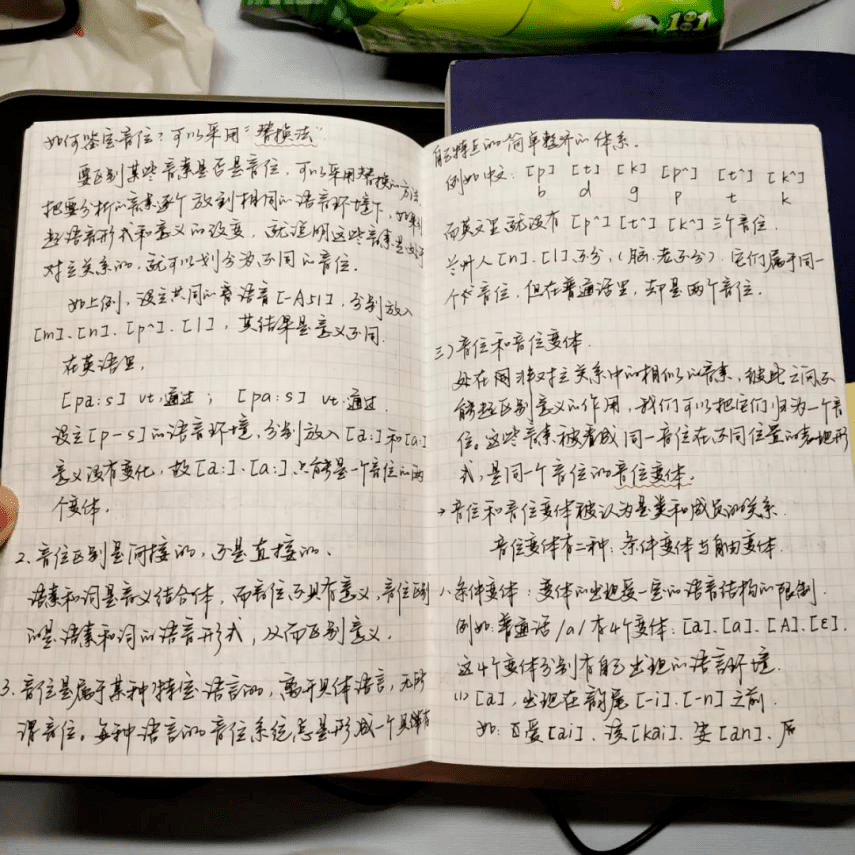 1:1
如何鉴定音位?可以采用“替换法”
要区别某些音素是否是音位,可以采用替换的方法,
把要分析的音素逐个放到相同的语音环境下,如果引
起语音形式和意义的改变,就说明这些音素是处于
对立关系的,就可以划分为不同的音位。
如上例,设立共同的音语音[-A51],分别放入
[m]、[n]、[p^]、[l],其结果是意义不同.
在英语里,
[pa:s] vt,通过; [pɑ:s] vt.通过.
设立[p-s]的语音环境,分别放入[a:]和[ɑ:]
意义没有变化,故[a:]、[ɑ:]只能是一个音位的两
个变体.
2.音位区别是间接的,不是直接的.
语素和词是音义结合体,而音位不具有意义,音位区别
的是语素和词的语音形式,从而区别意义.
3.音位是属于某种特定语言的,离开具体语言,无所
谓音位。每种语言的音位系统总是形成一个具有
自己特点的简单整齐的体系.
例如中文: [p] [t] [k] [p^] [t^] [k^]
b d g p t k
而英文里就没有[p^] [t^] [k^]三个音位.
兰州人[n]、[l]不分,(脑、老不分).它们属于同一
个音位,但在普通话里,却是两个音位.
三)音位和音位变体.
处在同非对立关系中的相似的音素,彼此之间不
能起区别意义的作用,我们可以把它们归为一个音
位。这些音素被看成同一音位在不同位置的表现形
式,是同一个音位的音位变体.
→音位和音位变体被认为是类和成员的关系.
音位变体有二种:条件变体与自由变体.
1.条件变体:变体的出现受一定的语音结构的限制.
例如:普通话/a/有4个变体:[a]、[ɑ]、[A]、[ɛ].
这4个变体分别有自己出现的语言环境.
(1)[a],出现在韵尾[-i]、[-n]之前.
如: 爱[ai]、该[kai]、安[an]、